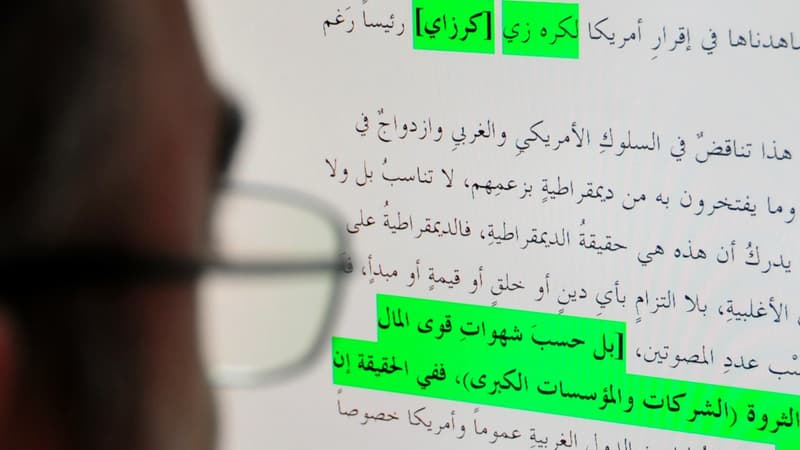 ـاهدناها في إقرارِ أمريكا لكره زي [كرزاي] رئيساً رَغم
هذا تناقضٌ في السلوكِ الأمريكيِ والغربيِ وازدواجٌ في
وما يفتخرون به من ديمقراطيةٍ بزعمِهم، لا تناسبُ بل ولا
يدركُ أن هذه هي حقيقةُ الديمقراطيةِ، فالديمقراطيةُ على
الأغلبيةِ، بلا التزامٍ بأيِ دينٍ أو خلقٍ أو قيمةٍ أو مبدأٍ،
عددِ المصوتين، [بل حسبَ شهواتِ قوى المال
الثروة (الشركات والمؤسسات الكبرى)، ففي الحقيقة إن
الدول الغربيةِ عموماً وأمريكا خصوصاً